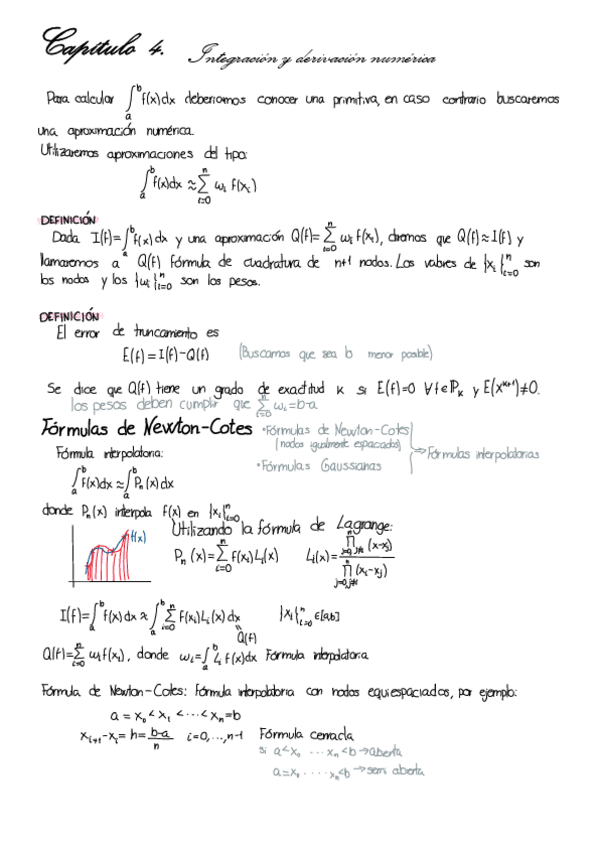 Capítulo 4. Integración y derivación numérica
Para calcular ∫_a^b f(x)dx deberíamos conocer una primitiva, en caso contrario buscaremos
una aproximación numérica.
Utilizaremos aproximaciones del tipo:
∫_a^b f(x)dx ≈ ∑_{i=0}^n ω_i f(x_i)
DEFINICIÓN
Dada I(f)=∫_a^b f(x)dx y una aproximación Q(f)=∑_{i=0}^n ω_i f(x_i), diremos que Q(f)≈I(f) y
llamaremos a Q(f) fórmula de cuadratura de n+1 nodos. Los valores de {x_i}_{i=0}^n son
los nodos y los {ω_i}_{i=0}^n son los pesos.
DEFINICIÓN
El error de truncamiento es
E(f)=I(f)-Q(f) (Buscamos que sea lo menor posible)
Se dice que Q(f) tiene un grado de exactitud k si E(f)=0 ∀f∈ℙ_k y E(x^{k+1})≠0.
los pesos deben cumplir que ∑_{i=0}^n ω_i=b-a
Fórmulas de Newton-Cotes
•Fórmulas de Newton-Cotes
(nodos igualmente espaciados)
•Fórmulas Gaussianas
→Fórmulas interpolatorias
Fórmula interpolatoria:
∫_a^b f(x)dx ≈ ∫_a^b P_n(x)dx
donde P_n(x) interpola f(x) en {x_i}_{i=0}^n
f(x)
Utilizando la fórmula de Lagrange:
P_n(x)=∑_{i=0}^n f(x_i)L_i(x) L_i(x)=∏_{j=0,j≠i}^n (x-x_j) / ∏_{j=0,j≠i}^n (x_i-x_j)
I(f)=∫_a^b f(x)dx ≈ ∫_a^b ∑_{i=0}^n f(x_i)L_i(x)dx {x_i}_{i=0}^n ∈[a,b]
Q(f)
Q(f)=∑_{i=0}^n ω_i f(x_i), donde ω_i=∫_a^b L_i f(x)dx Fórmula interpolatoria
Fórmula de Newton-Cotes: Fórmula interpolatoria con nodos equiespaciados, por ejemplo:
a=x_0<x_1<···<x_n=b
x_{i+1}-x_i=h=(b-a)/n i=0,...,n-1 Fórmula cerrada
si a<x_0 ··· x_n<b→abierta
a=x_0 ····· x_n<b→semi abierta